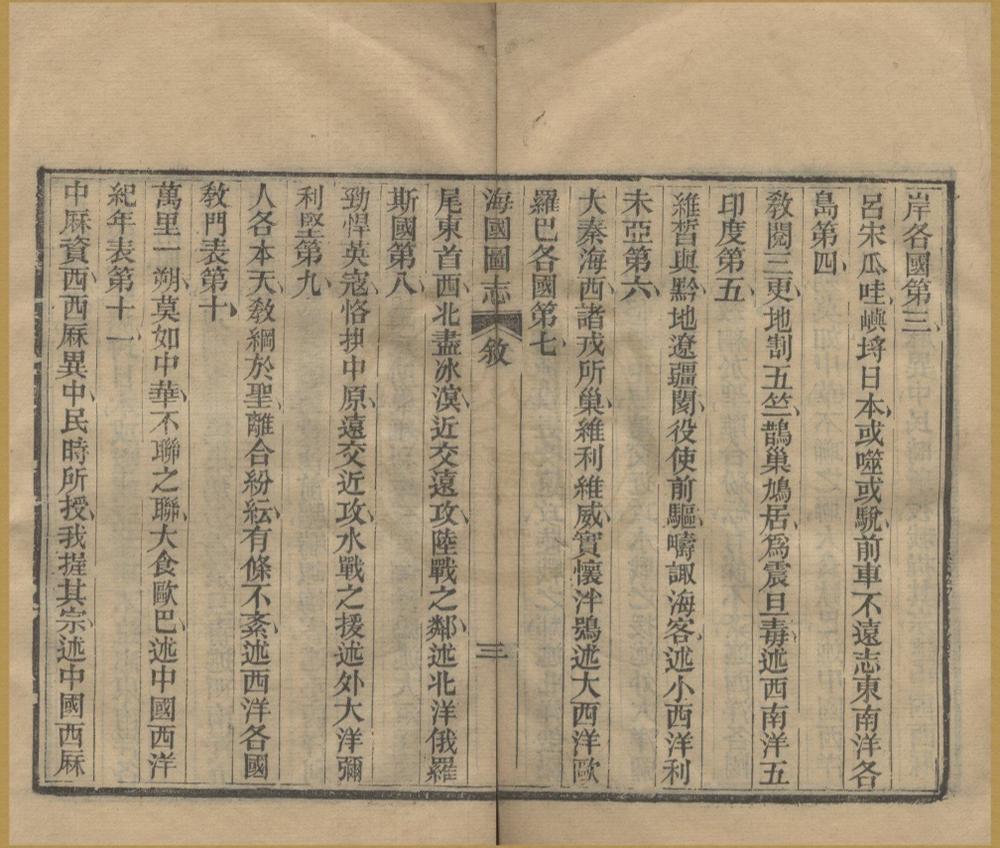 岸各國第三
呂宋瓜哇嶼埒日本或噬或駾前車不遠志東南洋各
島第四
敎閱三更地割五竺鵲巢鳩居爲震旦毒述西南洋五
印度第五
維晳與黔地遼疆閡役使前驅疇諏海客述小西洋利
未亞第六
大秦海西諸戎所巢維利維威實懷泮鴞述大西洋歐
羅巴各國第七
海國圖志 敘 三
尾東首西北盡冰溟近交遠攻陸戰之鄰述北洋俄羅
斯國第八
勁悍英寇恪拱中原遠交近攻水戰之援述外大洋彌
利堅第九
人各本天敎綱於聖離合紛紜有條不紊述西洋各國
敎門表第十
萬里一朔莫如中華不聯之聯大食歐巴述中國西洋
紀年表第十一
中厤資西西厤異中民時所授我握其宗述中國西厤